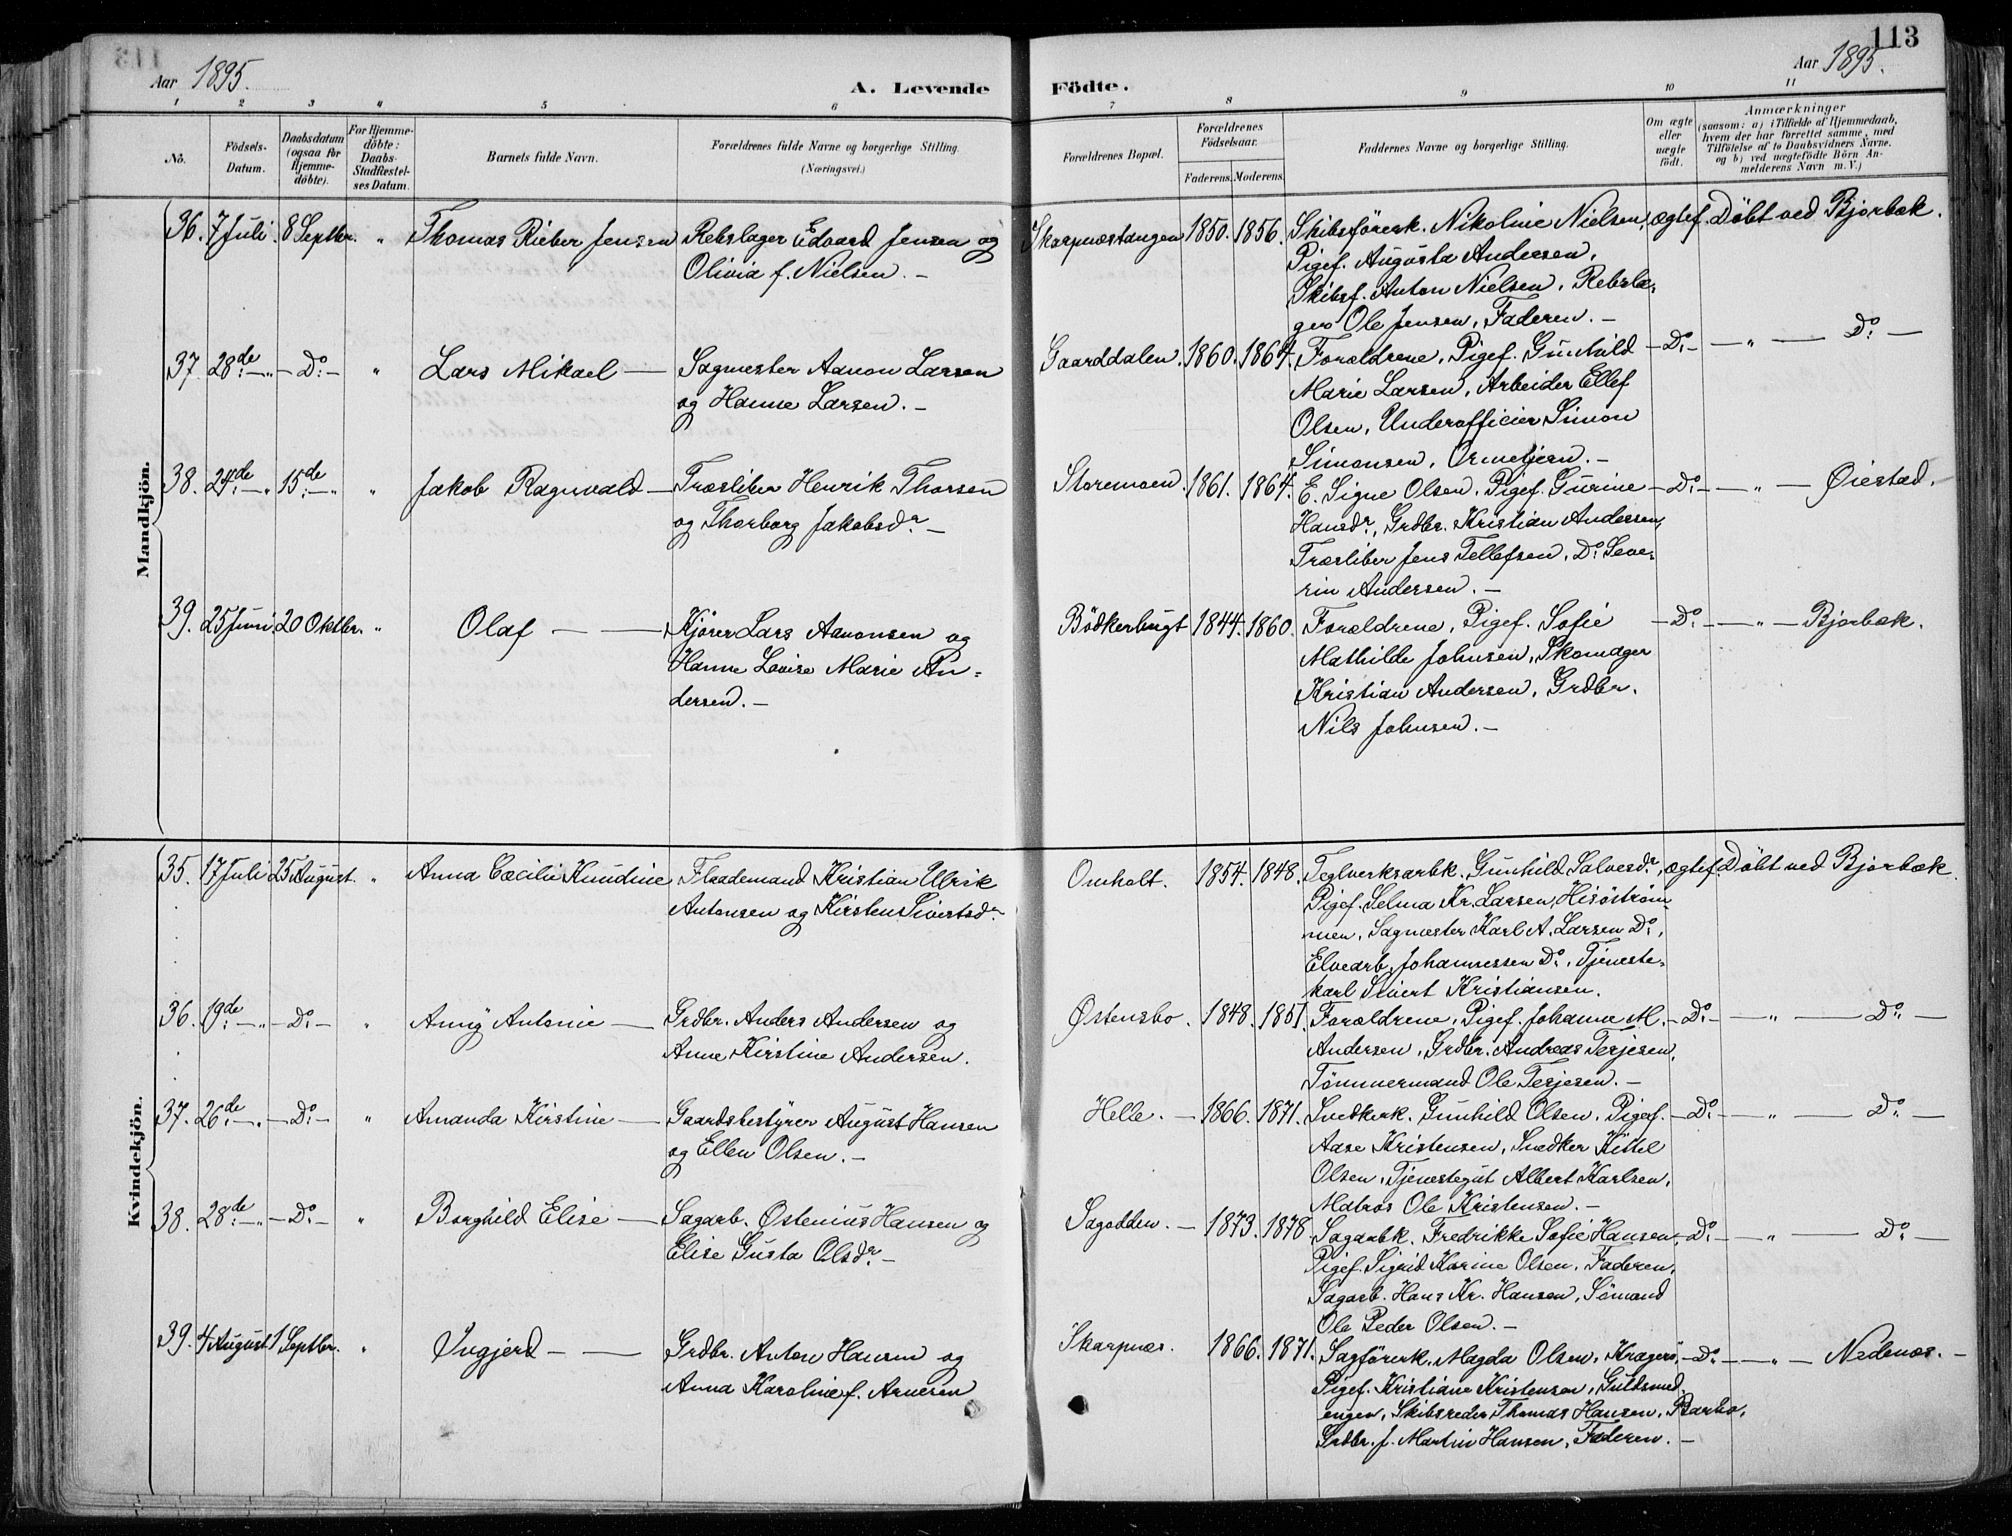 113
Aar 1895. A. Levende Födte. Aar 1895.
1 2 3 4 5 6 7 8 9 10 11
No.
Födsels-
Datum.
Daabsdatum
(ogsaa for
Hjemme-
döbte).
For Hjemme-
döbte:
Daabs-
Stadfæstel-
ses Datum.
Barnets fulde Navn.
Forældrenes fulde Navne og borgerlige Stilling.
(Næringsvei.)
Forældrenes Bopæl.
Forældrenes
Födselsaar.
Faderens. Moderens.
Faddernes Navne og borgerlige Stilling.
Om ægte
eller
uægte
födt.
Anmærkninger
(saasom: a) i Tilfælde af Hjemmedaab,
hvem der har forrettet samme, med
Tilföielse af to Daabsvidners Navne.
og b) ved uægtefödte Börn An-
melderens Navn m. V.)
Mandkjön.
36. 7 Juli 8 Septbr. " Thomas Rieber Jensen Rebslager Edvard Jensen og
Olivia f. Nielsen. —
Skarpnæstangen 1850. 1856. Skibsförerk. Nikoline Nielsen, ægtef. Döbt ved Bjorbæk.
Pigef. Augusta Andersen,
Skibsf. Anton Nielsen, Rebsla-
gers Ole Jensen, Faderen. —
37. 28de — " — Do — " Lars Mikael — Sagmester Aanon Larsen
og Hanne Larsen. —
Gaarddalen. 1860. 1864. Forældrene, Pigef. Gunhild — Do — — " — Do —
Marie Larsen, Arbeider Ellef
Olsen, Underofficier Simon
Simonsen, Ormetjern. —
38. 24de — " 15de — " " Jakob Ragnvald — Træsliber Henrik Thorsen
og Thorborg Jakobsdr —
Storemoen. 1861. 1864. E. Signe Olsen, Pigef. Gurine — Do — — " — Öiestad.
Hansdr, Grdbr. Kristian Andersen,
Træsliber Jens Tellefsen, Do Seve-
rin Andersen. —
39. 25 Juni 20 Oktbr. " Olaf — — Kjörer Lars Aanonsen og
Hanne Lovise Marie An-
dersen. —
Bödkerbugt 1844. 1860. Forældrene, Pigef. Sofie — Do — — " — Bjorbæk.
Mathilde Johnsen, Skomager
Kristian Andersen, Grdbr.
Nils Johnsen. —
Kvindekjön.
35. 17 Juli 25 August. " Anna Cæcilie Kundine Flaademand Kristian Ulrik
Antonsen og Kirsten Sivertsdr
Omholt. 1854. 1848. Teglverksarbk. Gunhild Salvesdr, ægtef. Döbt ved Bjorbæk.
Pigef. Selma Kr. Larsen, Hisöström-
men, Sagmester Karl A. Larsen Do,
Elvearb. Johannessen Do, Tjeneste-
karl Sivert Kristiansen.
36. 19de — " — Do — " Anny Antonie — Grdbr. Anders Andersen og
Anne Kirstine Andersen.
Østensbo. 1848. 1851. Forældrene, Pigef. Johanne M. — Do — — " — Do —
Andersen, Grdbr. Andreas Terjesen,
Tömmermand Ole Terjesen. —
37. 26de — " — Do — " Amanda Kirstine — Gaardsbestyrer August Hansen
og Ellen Olsen. —
Helle. — 1866. 1871. Snedkerk. Gunhild Olsen, Pigef. — Do — — " — Do —
Aase Kristensen, Snedker Kittel
Olsen, Tjenestegut Albert Karlsen,
Matros Ole Kristensen. —
38. 28de — " — Do — " Borghild Elise — Sagarb. Østenius Hansen og
Elise Gusta Olsdr —
Sagodden. — 1873. 1878. Sagarbk. Fredrikke Sofie Hansen, — Do — — " — Do —
Pigef. Sigrid Karine Olsen, Faderen,
Sagarb. Hans Kr. Hansen, Sömand
Ole Peder Olsen. —
39. 4 August 1 Septbr. " Ingjerd — — Grdbr. Anton Hansen og
Anna Karoline f. Arnesen
Skarpnæs. 1866. 1871. Sagförerk. Magda Olsen, Kragerö, — Do — — " — Nedenæs. —
Pigef. Kristiane Kristensen, Guldsmed-
engen, Skibsreder Thomas Hansen, Barbo,
Grdbr. f. Martin Hansen, Faderen. —